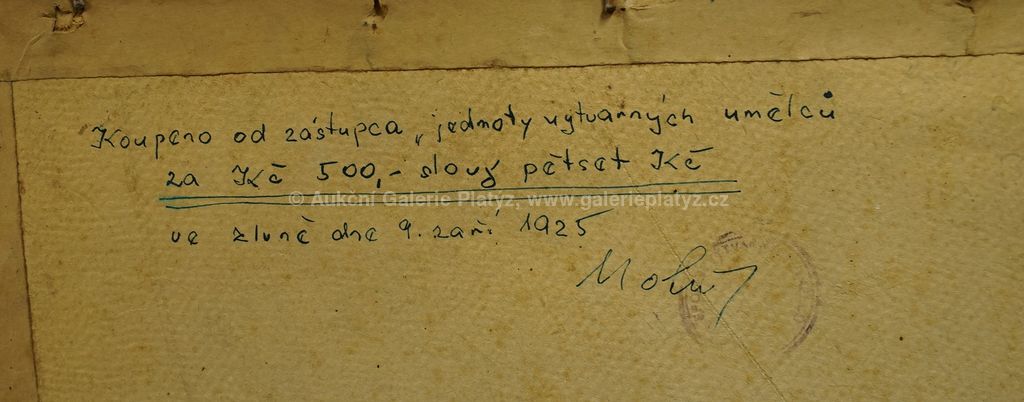 Koupeno od zástupca „jednoty výtvarných umělců
za Kč 500,- slovy pětset Kč
© Aukční Galerie Platýz, www.galerieplatyz.cz
ve dne 9. září 1925